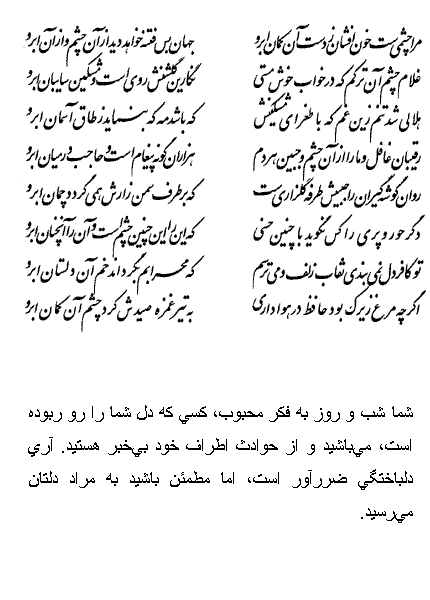 مرا چشمیست خون افشان ز دست آن کمان ابرو جهان بس فتنه خواهد دید از آن چشم و از آن ابرو
غلام چشم آن ترکم که در خواب خوش مستی نگارین گلشنش روی است و مشکین سایبان ابرو
هلالی شد تنم زین غم که با طغرای مشکینش که باشد مه که بنماید ز طاق آسمان ابرو
رقیبان غافل و ما را از آن چشم و جبین هر دم هزاران گونه پیغام است و حاجب در میان ابرو
روان گوشه گیران را جبینش طرفه گلزاری ست که بر طرف سمن زارش همی گردد چمان ابرو
دگر حور و پری را کس نگوید با چنین حسنی که این را این چنین چشم است و آن را آنچنان ابرو
تو کافر دل نمی بندی نقاب زلف و می ترسم که محرابم بگرداند خم آن دلستان ابرو
اگر چه مرغ زیرک بود حافظ در هواداری به تیر غمزه صیدش کرد چشم آن کمان ابرو
شما شب و روز به فکر محبوب، کسي که دل شما را رو ربوده
است، مي‌باشيد و از حوادث اطراف خود بي‌خبر هستيد. آري
دلباختگي ضررآور است، اما مطمئن باشيد به مراد دلتان
مي‌رسيد.